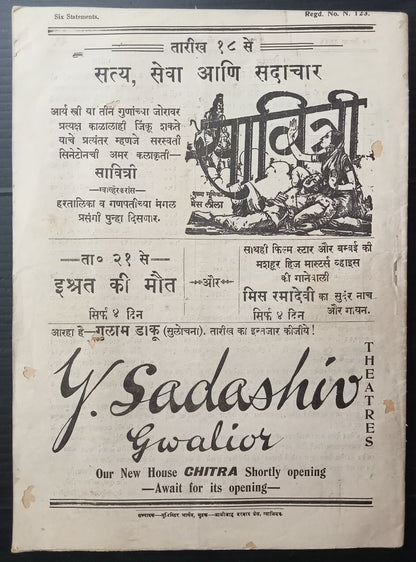 Six Statements.
Regd. No. N. 123.
तारीख १८ सें
सत्य, सेवा आणि सदाचार
आर्य स्त्री या तीन गुणांच्या जोरावर
प्रत्यक्ष काळालाही जिंकू शकते
याचे प्रत्यंतर म्हणजे सरस्वती
सिनेटोनची अमर कलाकृती—
सावित्री
हरतालिका व गणपतीच्या मंगल
प्रसंगी पुन्हा दिसणार.
सावित्री
मुख्य भूमिका
मिस लीला
—ता० २१ से—
इश्रत की मौत
सिर्फ ४ दिन
—और—
साथही फिल्म स्टार और बम्बई की
मशहुर हिज मास्टर्स व्हाइस
की गानेवाली
मिस रमादेवी का सुंदर नाच
और गायन.
सिर्फ ४ दिन
आरहा है—गुलाम डाकू (सुलोचना). तारीख का इन्तजार कीजीये !
Y. Sadashiv
THEATRES
Gwalior
Our New House CHITRA Shortly opening
—Await for its opening—